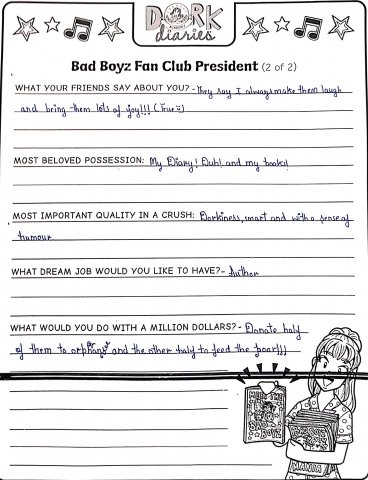 DORK
diaries
Bad Boyz Fan Club President (2 of 2)
WHAT YOUR FRIENDS SAY ABOUT YOU? - They say I always make them laugh
and bring them lots of joy!!! (True ü)
MOST BELOVED POSSESSION: My Diary! Duh! and my books!
MOST IMPORTANT QUALITY IN A CRUSH: Dorkiness, smart and with a sense of
humour
WHAT DREAM JOB WOULD YOU LIKE TO HAVE? - Author
WHAT WOULD YOU DO WITH A MILLION DOLLARS? - Donate half
of them to orphans and the other half to feed the poor!!!
BAD BOYZ
MANGA